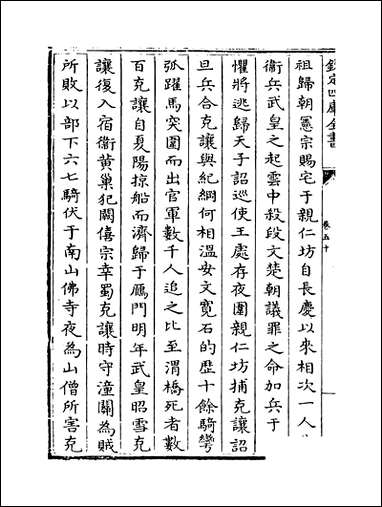 欽定四庫全書
卷五十
祖歸朝憲宗賜宅于親仁坊自長慶以來相次一人
衞兵武皇之起雲中殺段文楚朝議罪之命加兵于
懼將逃歸天子詔巡使王處存夜圍親仁坊捕克讓詰
旦兵合克讓與紀綱何相溫安文寬石的歴十餘騎彎
弧躍馬突圍而出官軍數千人追之比至渭橋死者數
百克讓自夏陽掠船而濟歸于鴈門明年武皇昭雪克
讓復入宿衞黄巢犯闕僖宗幸蜀克讓時守潼關為賊
所敗以部下六七騎伏于南山佛寺夜為山僧所害克